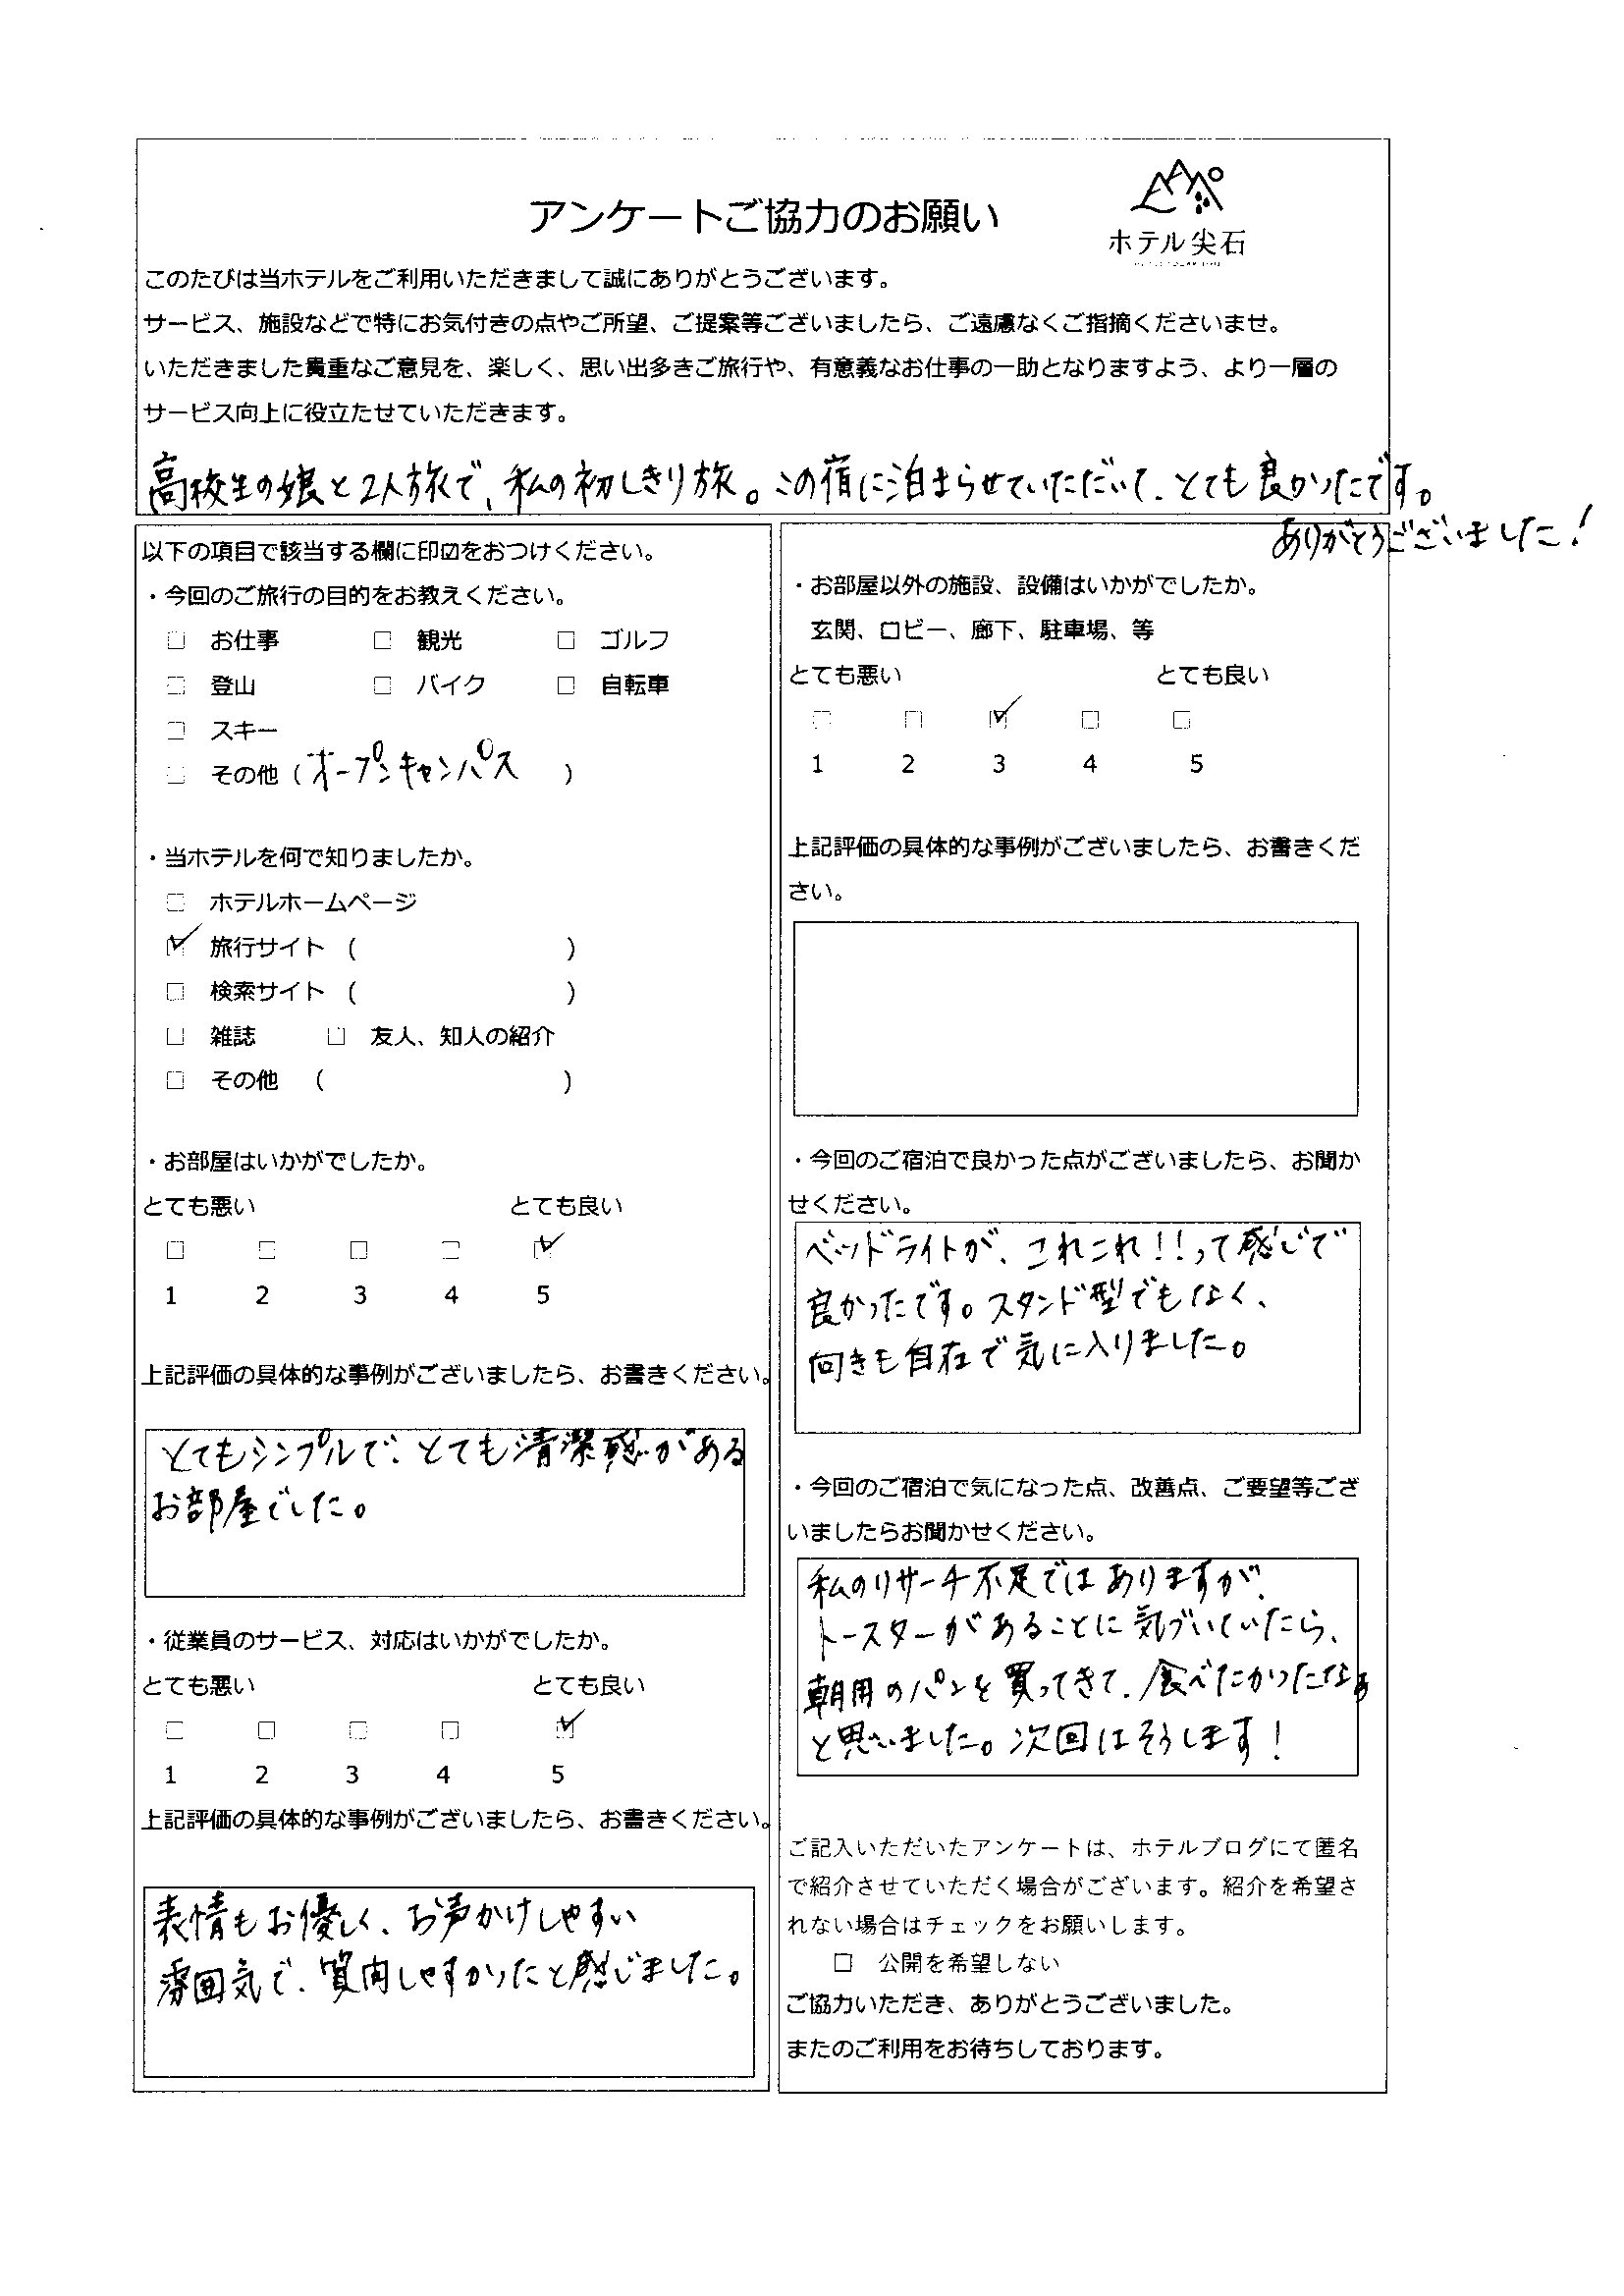 アンケートご協力のお願い
ホテル尖石
このたびは当ホテルをご利用いただきまして誠にありがとうございます。
サービス、施設などで特にお気付きの点やご所望、ご提案等ございましたら、ご遠慮なくご指摘くださいませ。
いただきました貴重なご意見を、楽しく、思い出多きご旅行や、有意義なお仕事の一助となりますよう、より一層の
サービス向上に役立たせていただきます。
高校生の娘と2人旅で、私の初しきり旅。この宿に泊まらせていただいて、とても良かったです。
ありがとうございました！
以下の項目で該当する欄に印☑をおつけください。
・今回のご旅行の目的をお教えください。
□ お仕事 □ 観光 □ ゴルフ
□ 登山 □ バイク □ 自転車
□ スキー
□ その他（オープンキャンパス ）
・当ホテルを何で知りましたか。
□ ホテルホームページ
☑ 旅行サイト （ ）
□ 検索サイト （ ）
□ 雑誌 □ 友人、知人の紹介
□ その他 （ ）
・お部屋はいかがでしたか。
とても悪い とても良い
□ □ □ □ ☑
1 2 3 4 5
上記評価の具体的な事例がございましたら、お書きください。
とてもシンプルで、とても清潔感がある
お部屋でした。
・従業員のサービス、対応はいかがでしたか。
とても悪い とても良い
□ □ □ □ ☑
1 2 3 4 5
上記評価の具体的な事例がございましたら、お書きください。
表情もお優しく、お声かけしやすい
雰囲気で、質問しやすかったと感じました。
・お部屋以外の施設、設備はいかがでしたか。
玄関、ロビー、廊下、駐車場、等
とても悪い とても良い
□ □ ☑ □ □
1 2 3 4 5
上記評価の具体的な事例がございましたら、お書きくだ
さい。
・今回のご宿泊で良かった点がございましたら、お聞か
せください。
ベッドライトが、これこれ！！って感じで
良かったです。スタンド型でもなく、
向きも自在で気に入りました。
・今回のご宿泊で気になった点、改善点、ご要望等ござ
いましたらお聞かせください。
私のリサーチ不足ではありますが、
トースターがあることに気づいていたら、
朝用のパンを買ってきて、食べたかったなぁ
と思いました。次回はそうします！
ご記入いただいたアンケートは、ホテルブログにて匿名
で紹介させていただく場合がございます。紹介を希望さ
れない場合はチェックをお願いします。
□ 公開を希望しない
ご協力いただき、ありがとうございました。
またのご利用をお待ちしております。